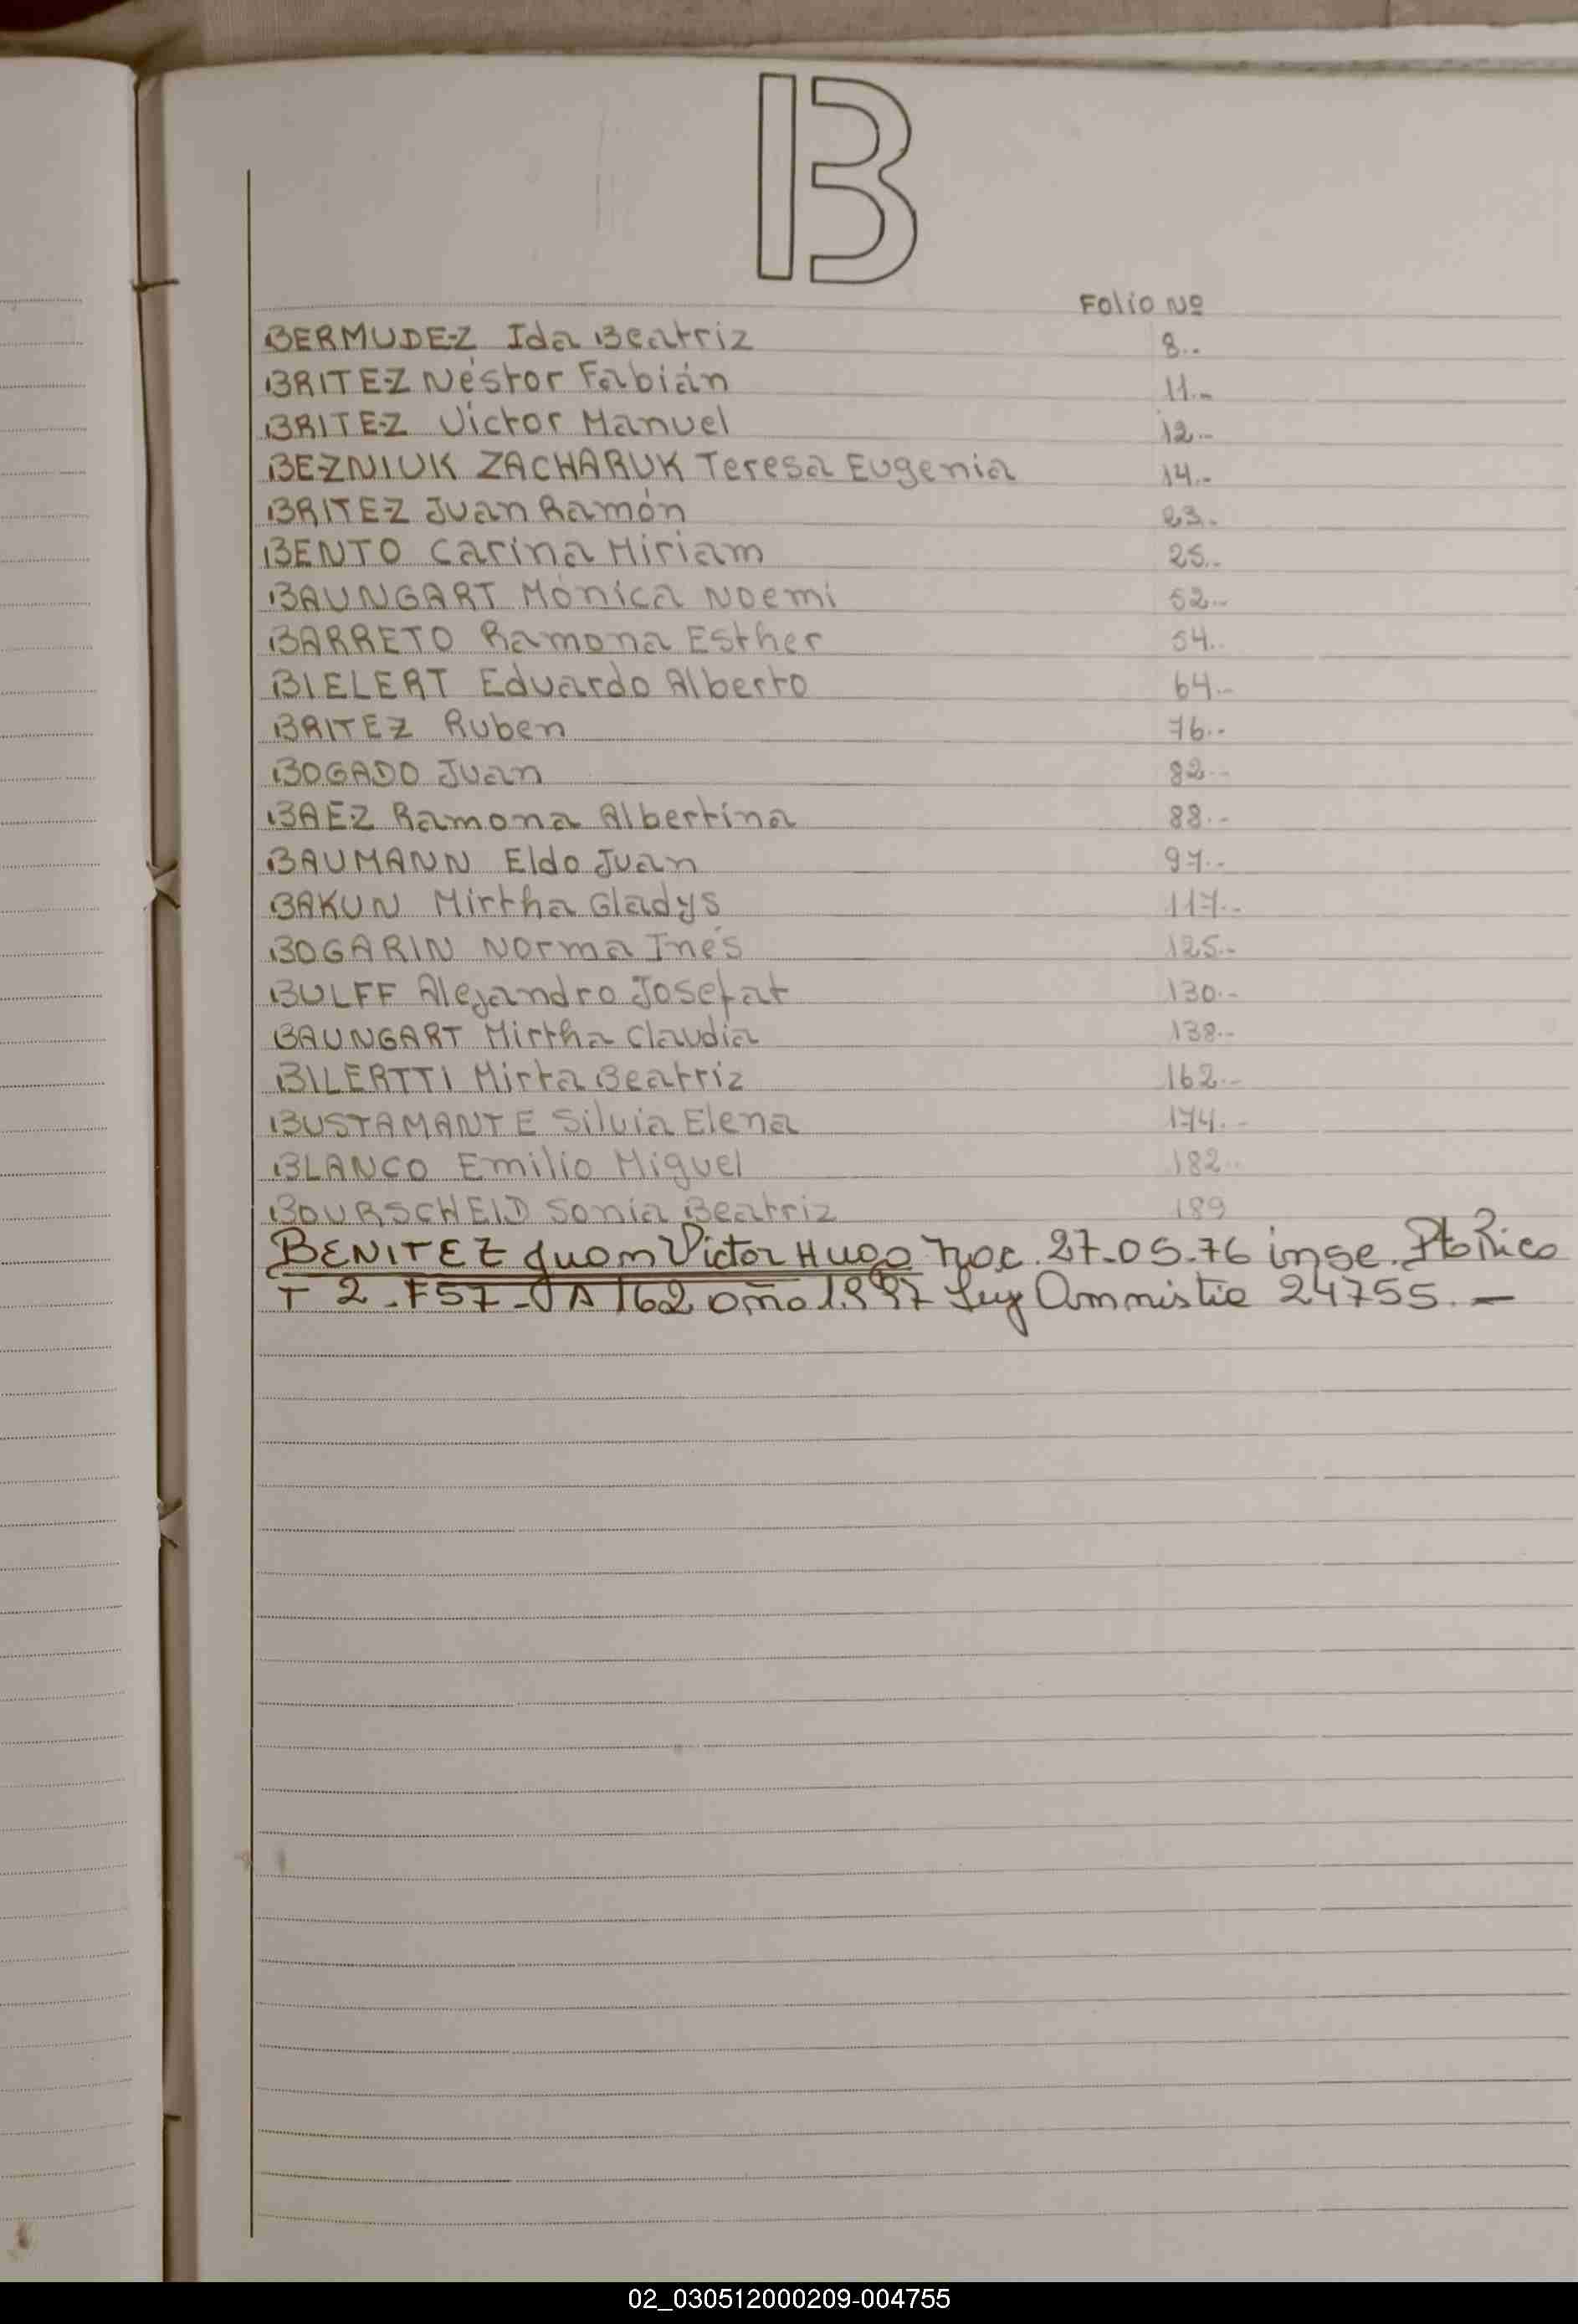 B
Folio Nº
BERMUDEZ Ida Beatriz 8.-
BRITEZ Néstor Fabián 11.-
BRITEZ Victor Manuel 12.-
BEZNIUK ZACHARUK Teresa Eugenia 14.-
BRITEZ Juan Ramón 23.
BENTO Carina Miriam 25.-
BAUNGART Mónica Noemi 52.-
BARRETO Ramona Esther 54.-
BIELERT Eduardo Alberto 64.-
BRITEZ Ruben 76.-
BOGADO Juan 82.-
BAEZ Ramona Albertina 88.-
BAUMANN Eldo Juan 97.-
BAKUN Mirtha Gladys 117.-
BOGARIN Norma Inés 125.-
BULFF Alejandro Josefat 130.-
BAUNGART Mirtha Claudia 138.-
BILERTTI Mirta Beatriz 162.-
BUSTAMANTE Silvia Elena 174.-
BLANCO Emilio Miguel 182.-
BOURSCHEID Sonia Beatriz 189
BENITEZ Juan Victor Hugo nac. 27-05-76 insc. Pto Rico
T 2-F57- A 162 año 1997 Ley Amnistia 24755.-
02_030512000209-004755